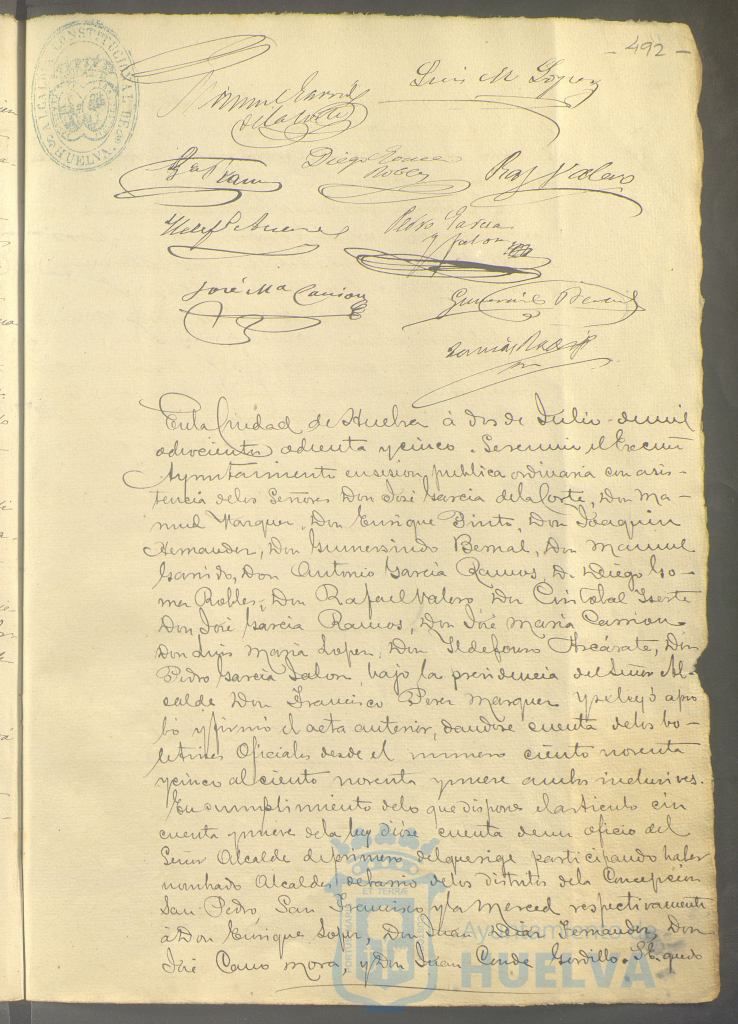 - 492 -
ALCALDIA CONSTITUCIONAL DE HUELVA
Manuel Garrido
de la Corte
Luis M Lopez
Diego Gomez
Robles
Raf Valero
Pedro Garcia
y Jalon
José Mª Carrion
Gumersindo Bernal
En la Ciudad de Huelva á dos de Julio de mil
ochocientos ochenta y cinco. Se reunio el Excmo
Ayuntamiento en sesion publica ordinaria con asis-
tencia de los Señores Don José Garcia de la Corte, Don Ma-
nuel Marquez, Don Enrique Pinto, Don Joaquin
Hernandez, Don Gumersindo Bernal, Don Manuel
Garrido, Don Antonio Garcia Ramos, D. Diego Go-
mez Robles, Don Rafael Valero, Don Cristobal Iserte
Don José Garcia Ramos, Don José Maria Carrion
Don Luis Maria Lopez, Don Ildefonso Azcárate, Don
Pedro Garcia Jalon, bajo la presidencia del Señor Al-
calde Don Francisco Perez Marquez y se leyó apro
bó y firmó el acta anterior, dandose cuenta de los bo-
letines Oficiales desde el numero ciento noventa
y cinco al ciento noventa y nueve ambos inclusives.
En cumplimiento de lo que dispone el articulo cin
cuenta y nueve de la ley dióse cuenta de un oficio del
Señor Alcalde de primero del que rige participando haber
nombrado Alcaldes de barrio de los distritos de la Concepcion
San Pedro, San Francisco y la Merced respectivamente
á Don Enrique Lopez, Don Juan Diaz Fernandez, Don
José Cano Mora, y Don Juan Conde Gordillo. Se quedó
Ayuntamiento de
HUELVA